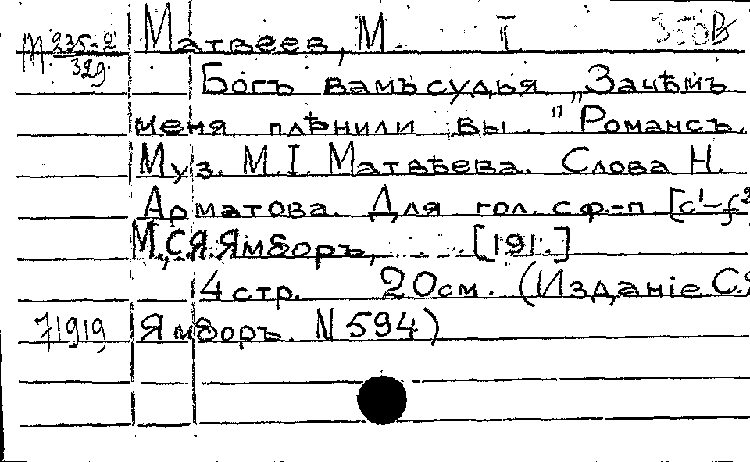 М 235-2/329 Матвеев, М. I
Богъ вамъ судья „Зачѣмъ
меня плѣнили вы." Романсъ.
Муз. М.I. Матвѣева. Слова Н.
Арматова. Для гол. с ф-п [c¹-f²
М., С.Я. Ямборъ, . . . [191.]
4 стр. 20 см. (Изданіе С.Я
71919 Ямборъ. N 594)